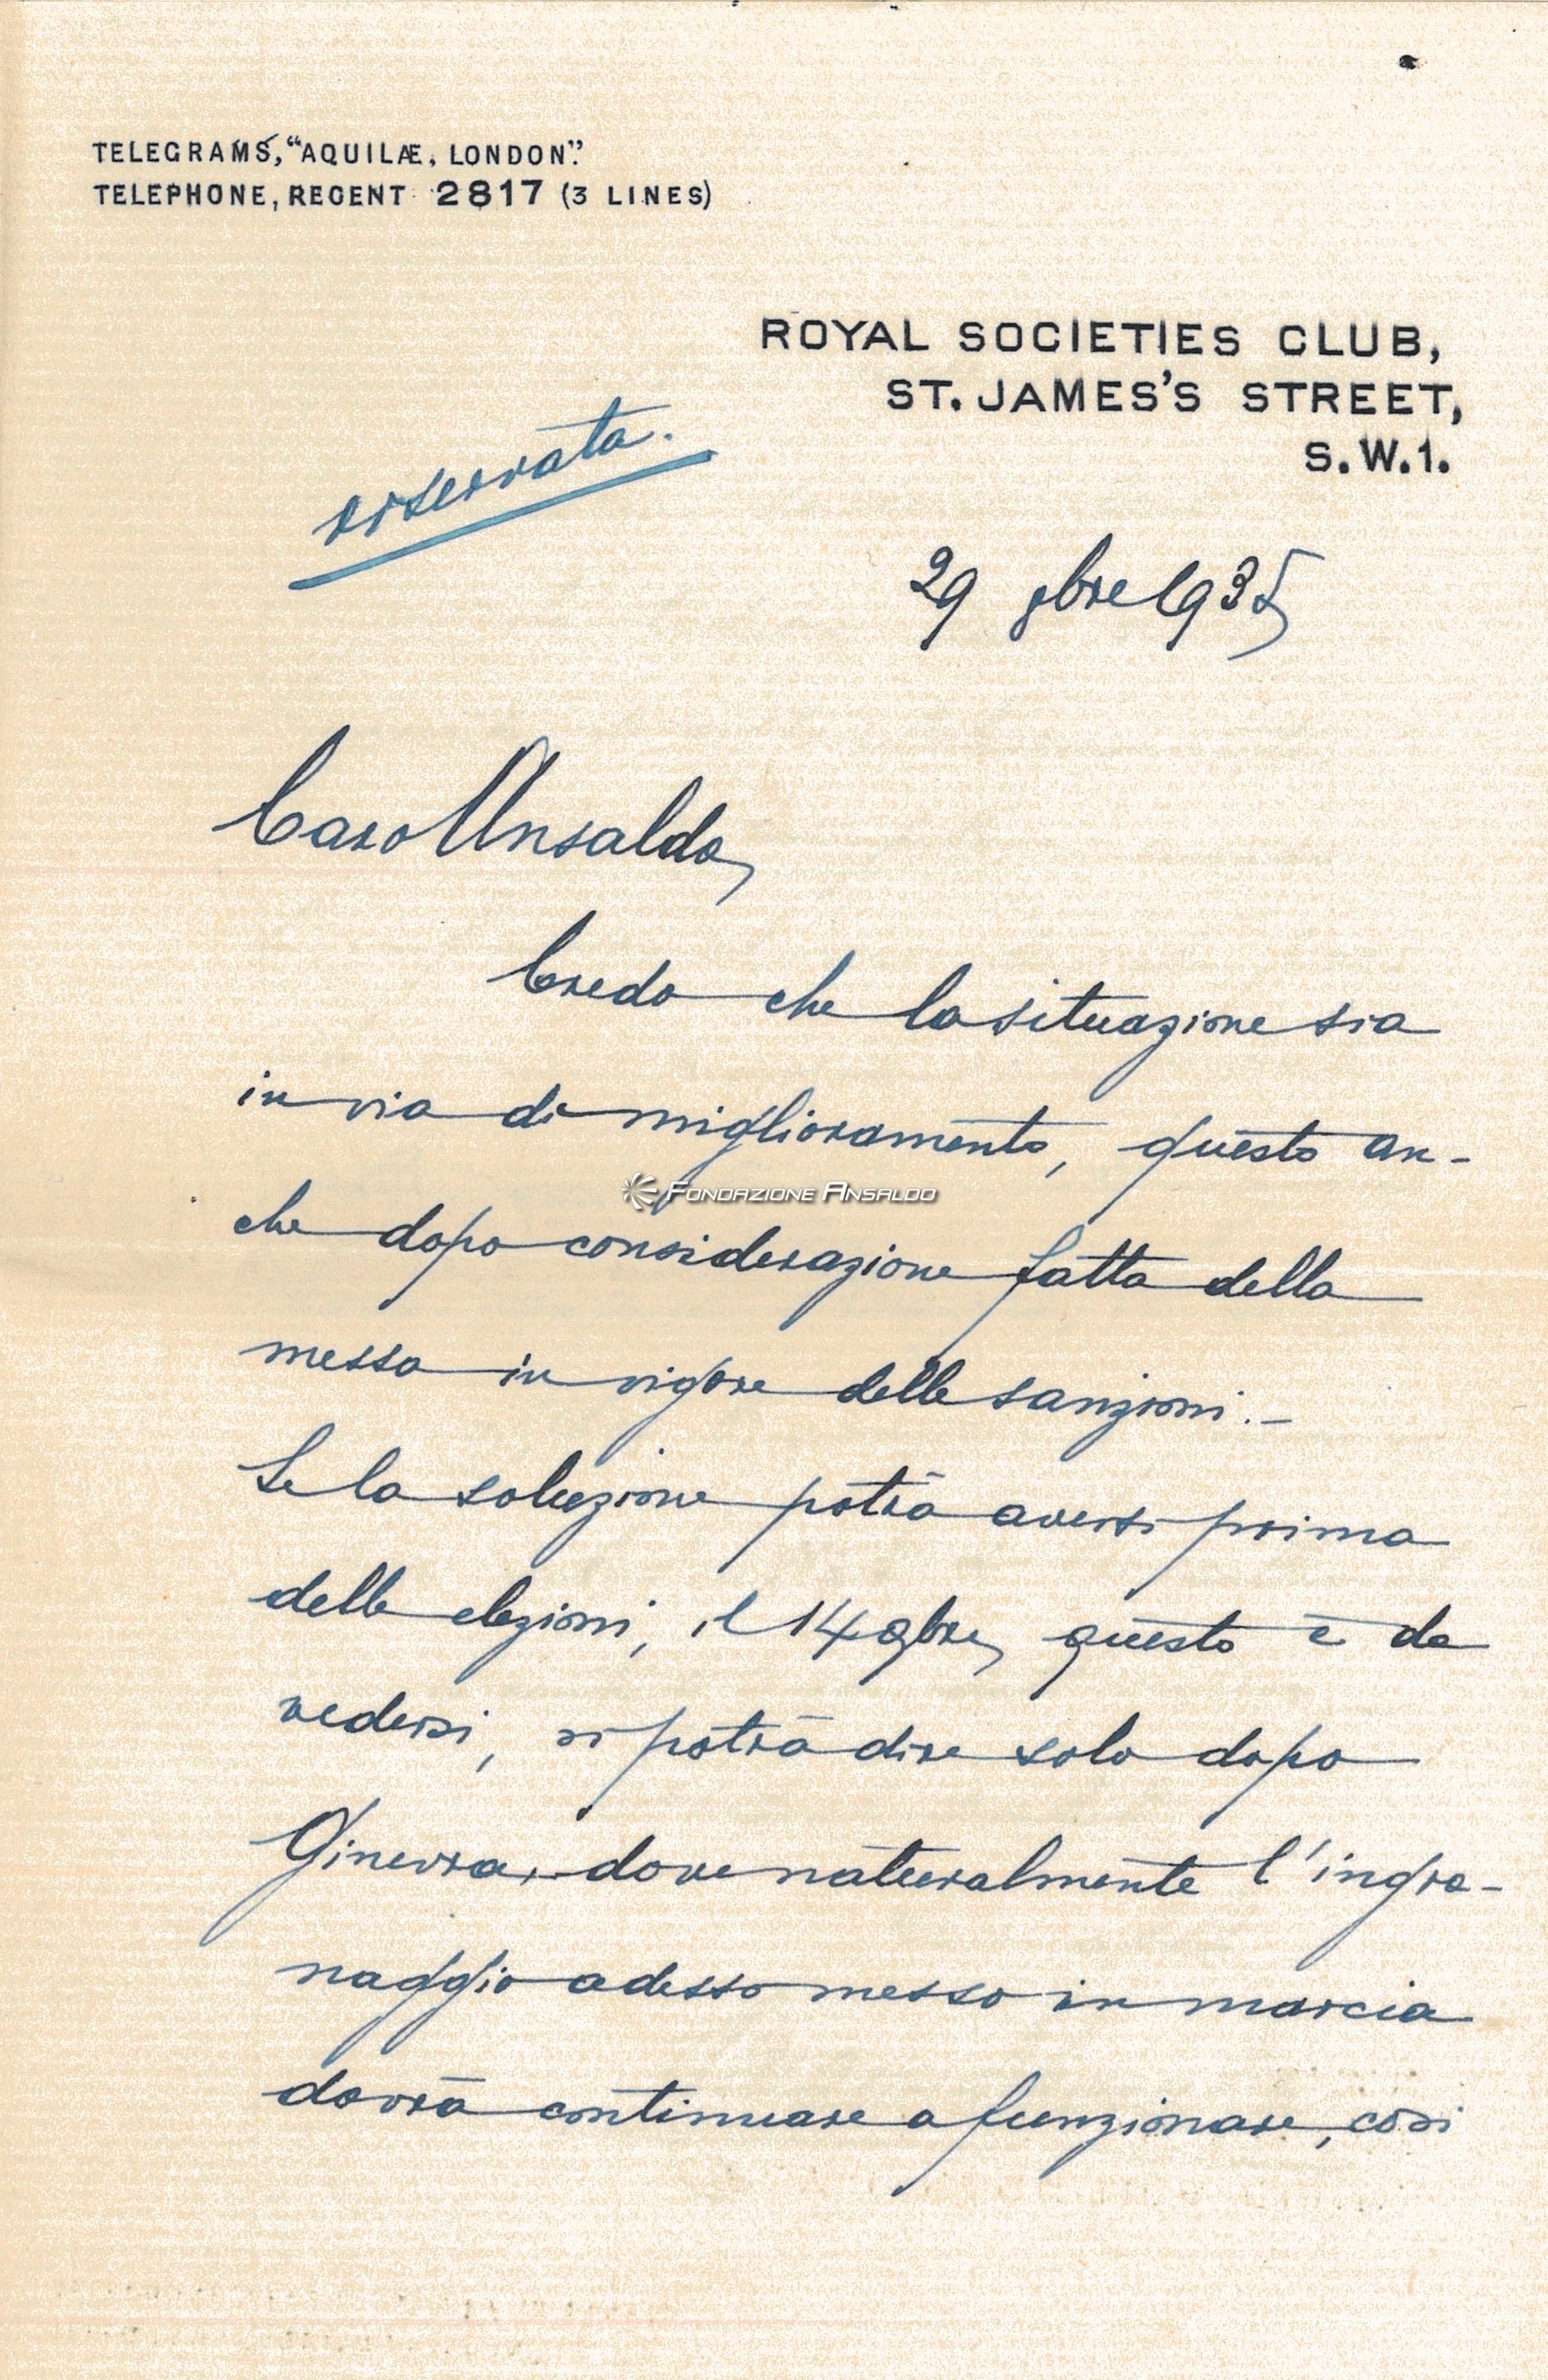 TELEGRAMS, "AQUILÆ, LONDON".
TELEPHONE, REGENT 2817 (3 LINES)
ROYAL SOCIETIES CLUB,
ST. JAMES'S STREET,
S.W.1.
riservata.
29 8bre 1935
Caro Ansaldo,
Credo che la situazione sia
in via di miglioramento, questo an-
FONDAZIONE ANSALDO
che dopo considerazione fatta della
messa in vigore delle sanzioni.-
Se la soluzione potrà aversi prima
delle elezioni, il 14 9bre, questo è da
vedersi, si potrà dire solo dopo
Ginevra, dove naturalmente l'ingra-
naggio adesso messo in marcia
dovrà continuare a funzionare, così